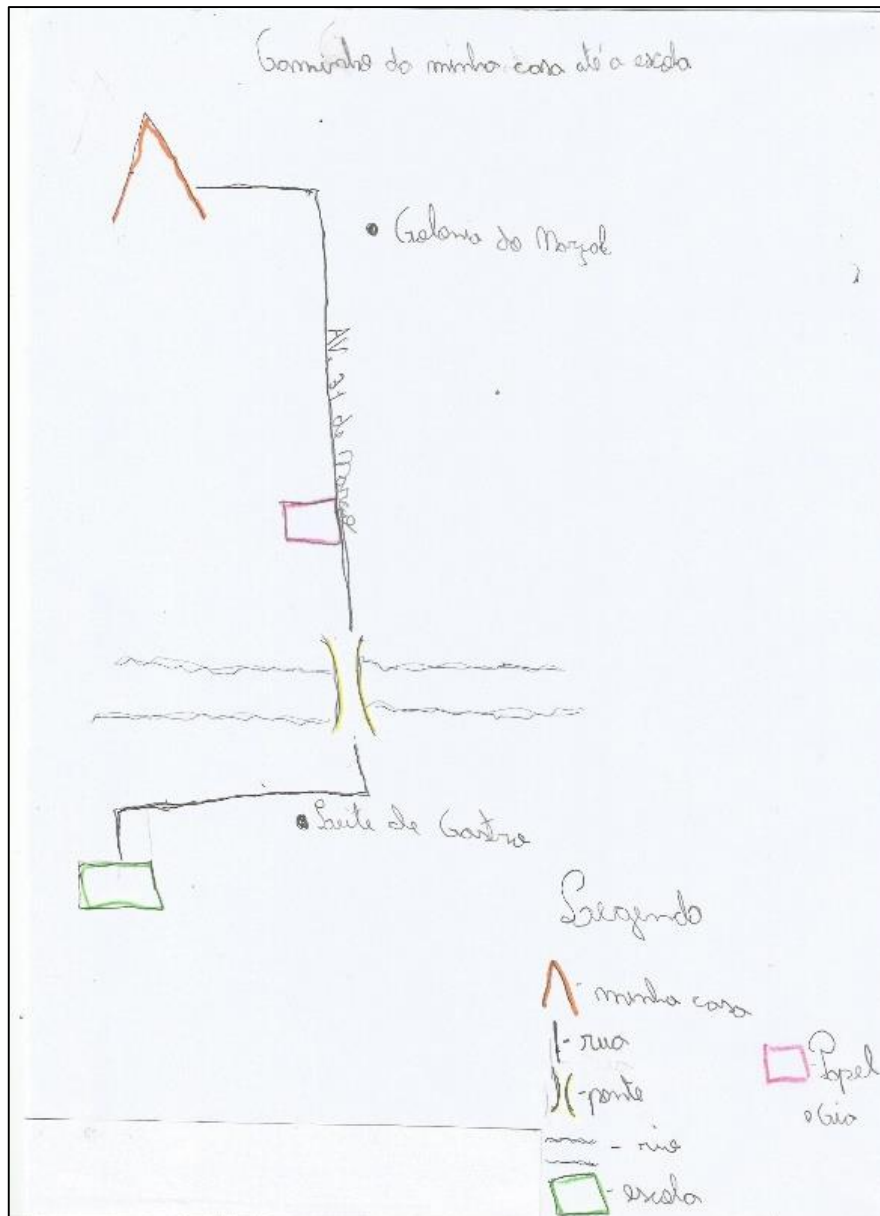 Caminho da minha casa até a escola
Colonia do Marçal
Av. 31 de Março
Leite de Castro
Legenda
- minha casa
- rua
- ponte
- rio
- escola
- Papel
e Cia